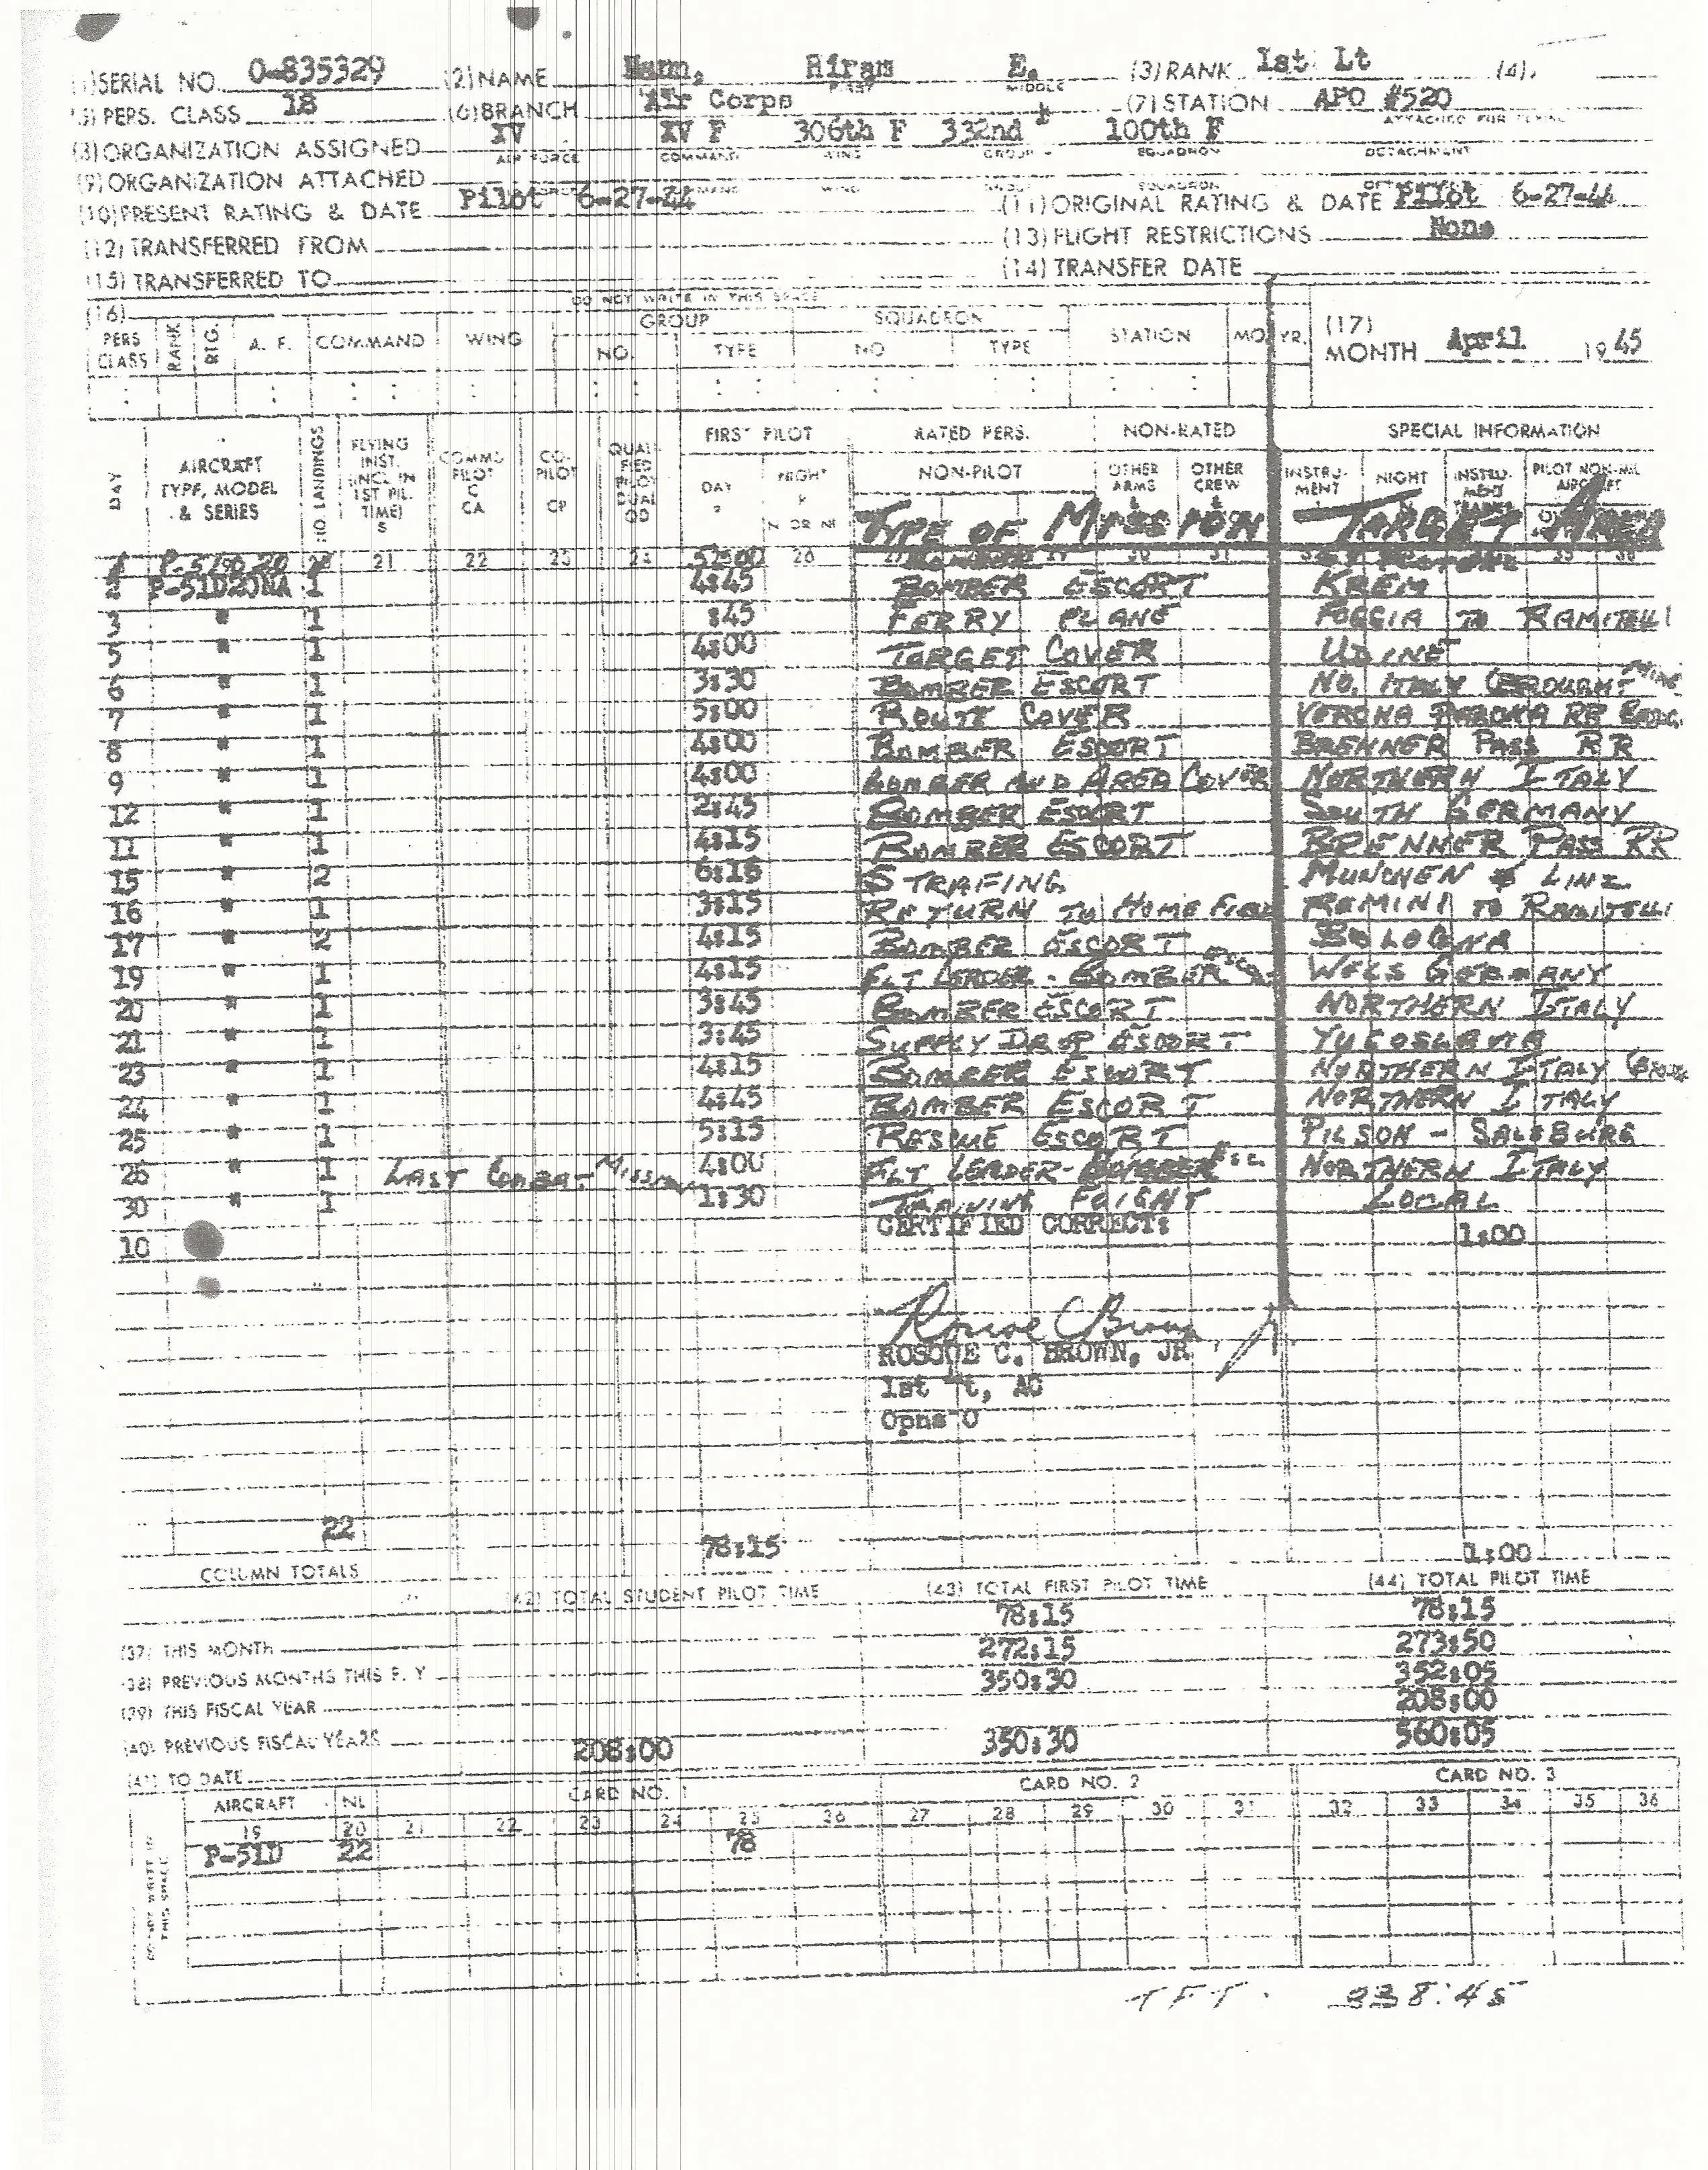 (1) SERIAL NO. 0-835329 (2) NAME Mann, Hiram E. (3) RANK 1st Lt (4)
FIRST MIDDLE
(5) PERS. CLASS 18 (6) BRANCH Air Corps (7) STATION APO #520
(8) ORGANIZATION ASSIGNED XV XV F 306th F 332nd 100th F
AIR FORCE COMMAND WING GROUP SQUADRON DETACHMENT
(9) ORGANIZATION ATTACHED
(10) PRESENT RATING & DATE Pilot 6-27-44 (11) ORIGINAL RATING & DATE Pilot 6-27-44
(12) TRANSFERRED FROM (13) FLIGHT RESTRICTIONS None
(15) TRANSFERRED TO (14) TRANSFER DATE
DO NOT WRITE IN THIS SPACE
(16) GROUP SQUADRON
PERS CLASS RANK RTG. A. F. COMMAND WING NO. TYPE NO TYPE STATION MO. YR. (17) MONTH April 1945
DAY AIRCRAFT TYPE, MODEL & SERIES NO. LANDINGS FLYING INST. (INCL IN 1ST PIL. TIME) S COMMD PILOT C CA CO-PILOT CP QUALIFIED PILOT DUAL QD FIRST PILOT DAY P NIGHT P N OR NI RATED PERS. NON-PILOT NON-RATED OTHER ARMS & OTHER CREW & SPECIAL INFORMATION INSTRUMENT NIGHT PILOT NON-MIL AIRCRAFT
TYPE OF MISSION TARGET AREA
21 22 23 24 26
2 P-51D20NA 1 4:45 BOMBER ESCORT KREM
3 " 1 :45 FERRY PLANE FOGGIA TO RAMITELLI
5 " 1 4:00 TARGET COVER UDINE
6 " 1 3:30 BOMBER ESCORT NO. ITALY
7 " 1 5:00 ROUTE COVER VERONA PARONA RR BRDG.
8 " 1 4:00 BOMBER ESCORT BRENNER PASS RR
9 " 1 4:00 BOMBER AND AREA COVER NORTHERN ITALY
12 " 1 2:45 BOMBER ESCORT SOUTH GERMANY
11 " 1 4:15 BOMBER ESCORT BRENNER PASS RR
15 " 2 6:15 STRAFING MUNCHEN & LINZ
16 " 1 3:15 RETURN TO HOME FIELD REMINI TO RAMITELLI
17 " 2 4:15 BOMBER ESCORT BOLOGNA
19 " 1 4:15 FLT LEADER - BOMBER ESC. WELS GERMANY
20 " 1 3:45 BOMBER ESCORT NORTHERN ITALY
21 " 1 3:45 SUPPLY DROP ESCORT YUGOSLAVIA
23 " 1 4:15 BOMBER ESCORT NORTHERN ITALY
24 " 1 4:45 BOMBER ESCORT NORTHERN ITALY
25 " 1 5:15 RESCUE ESCORT PILSON - SALSBURG
26 " 1 LAST COMBAT MISSION 4:00 FLT LEADER - BOMBER ESC. NORTHERN ITALY
30 " 1 1:30 TRAINING FLIGHT LOCAL
10 CERTIFIED CORRECT: 1:00
ROSCOE C. BROWN, JR
1st Lt, AC
Opns O
22 78:15 1:00
COLUMN TOTALS
(42) TOTAL STUDENT PILOT TIME (43) TOTAL FIRST PILOT TIME (44) TOTAL PILOT TIME
(37) THIS MONTH 78:15 78:15
(38) PREVIOUS MONTHS THIS F. Y 272:15 273:50
(39) THIS FISCAL YEAR 350:30 352:05
(40) PREVIOUS FISCAL YEARS 208:00
(41) TO DATE 208:00 350:30 560:05
AIRCRAFT NL CARD NO. 1 CARD NO. 2 CARD NO. 3
19 20 21 22 23 24 25 26 27 28 29 30 31 32 33 34 35 36
P-51D 22 78
DO NOT WRITE IN THIS SPACE
TFT. 338:45